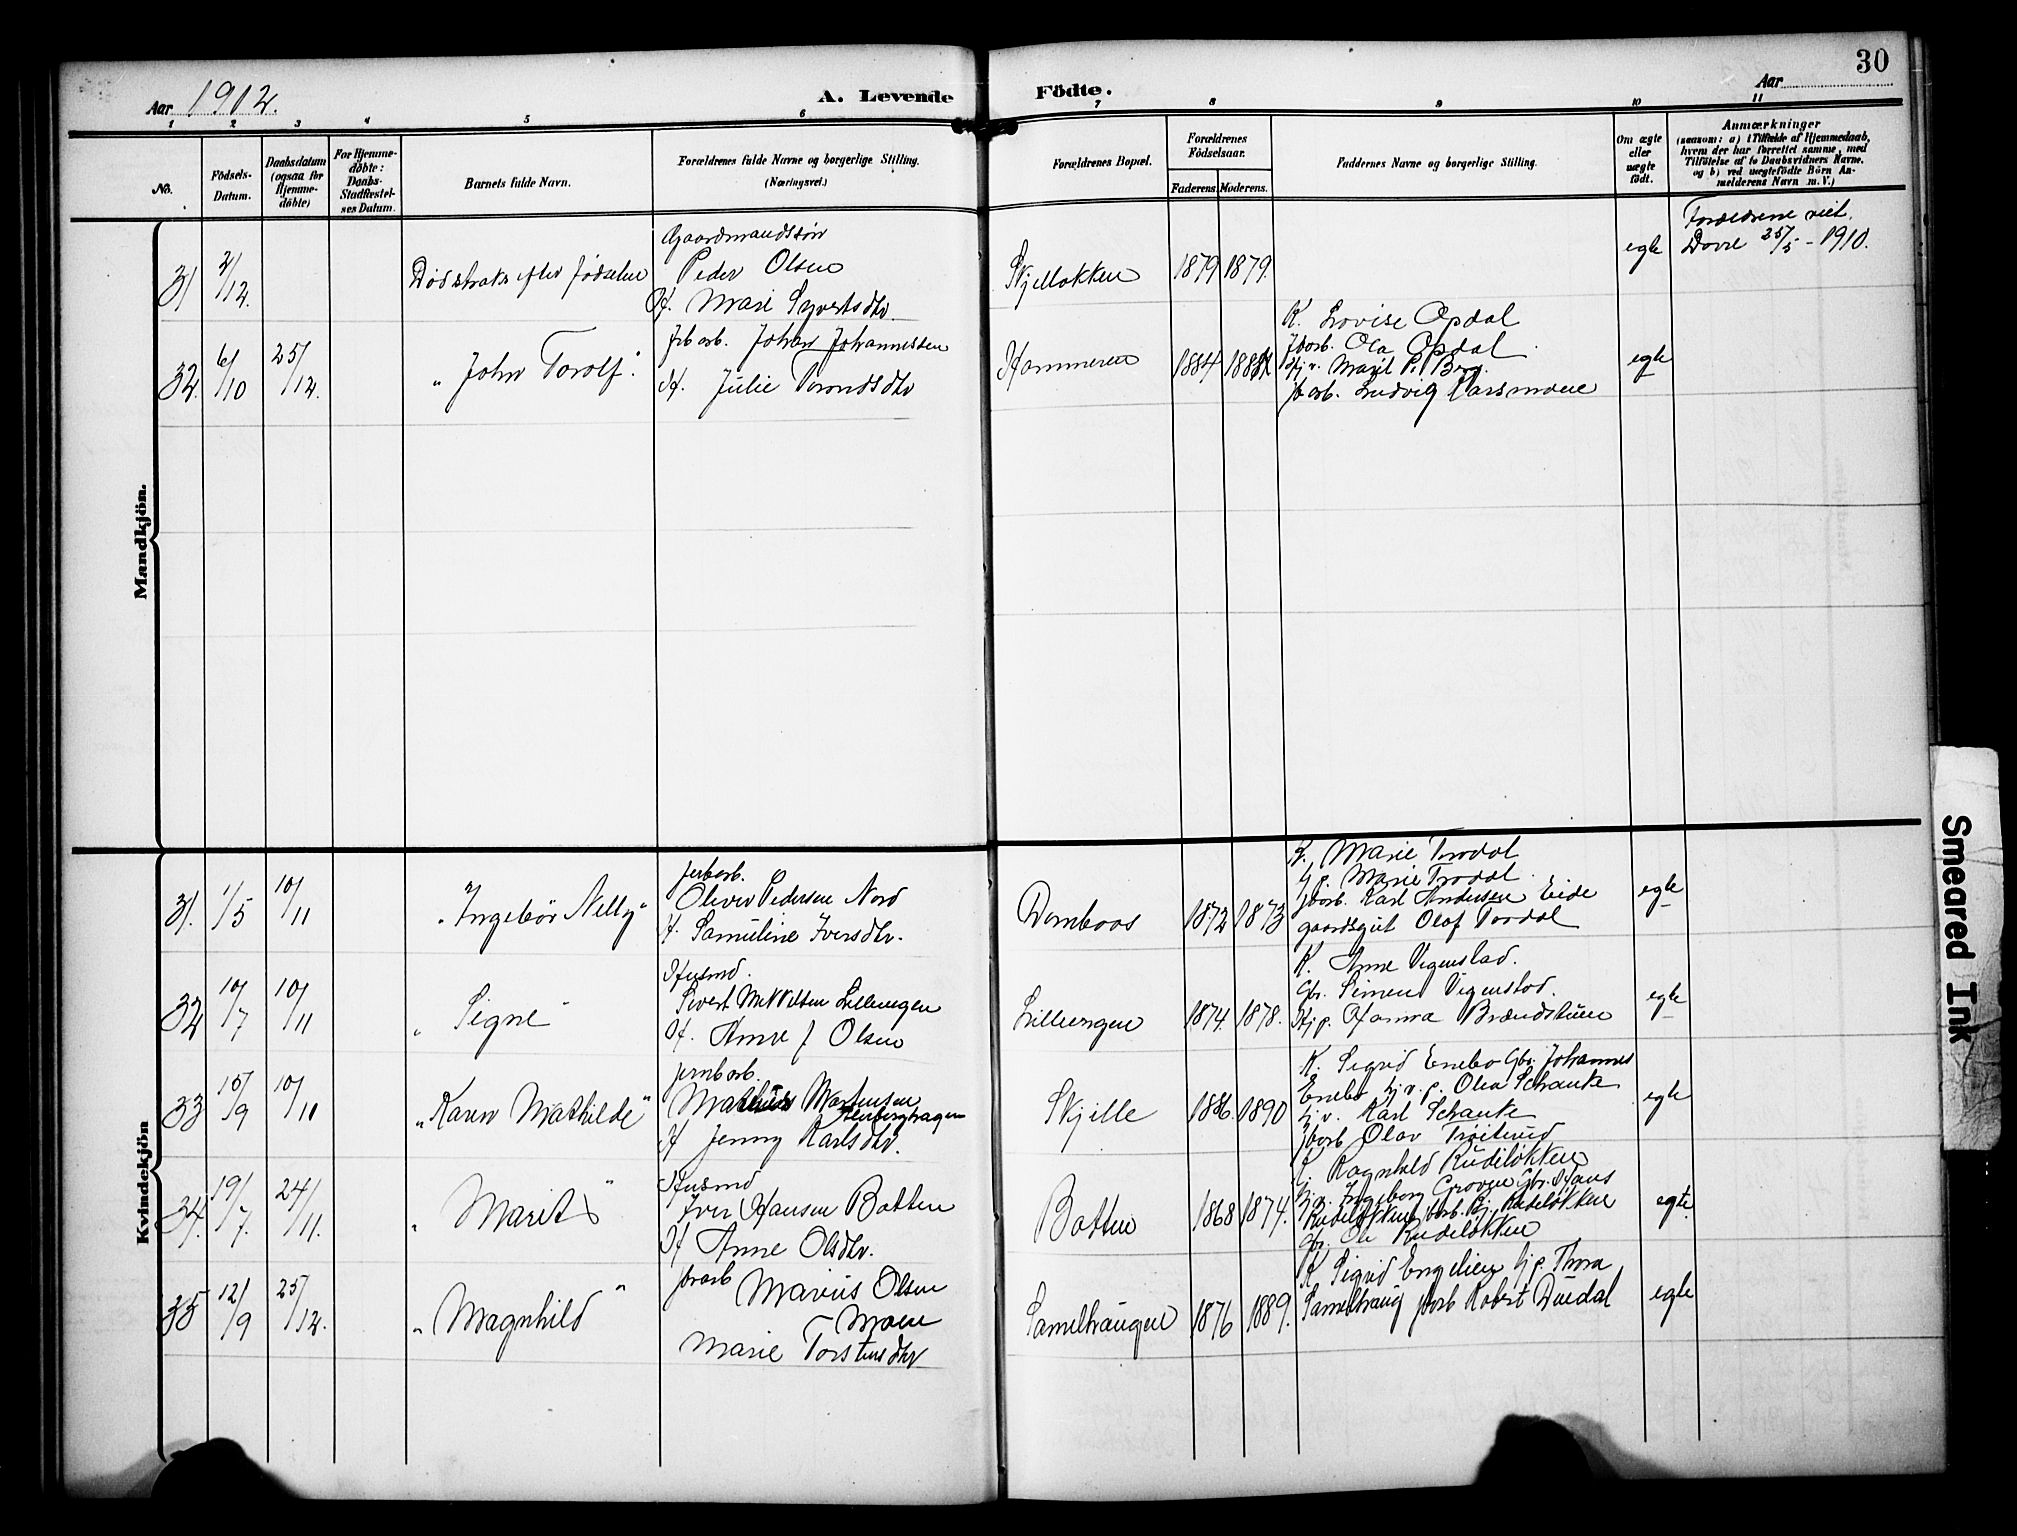 30
Aar 1912.
A. Levende Födte.
Aar
1 2 3 4 5 6 7 8 9 10 11
No.
Födsels-
Datum.
Daabsdatum
(ogsaa for
Hjemme-
döbte)
For Hjemme-
döbte:
Daabs-
Stadfæstel-
ses Datum.
Barnets fulde Navn.
Forældrenes fulde Navne og borgerlige Stilling.
(Næringsvei.)
Forældrenes Bopæl.
Forældrenes
Födselsaar.
Faderens. Moderens.
Faddernes Navne og borgerlige Stilling.
Om ægte
eller
uægte
født.
Anmærkninger
(saasom: a) i Tilfælde af Hjemmedaab,
hvem der har forrettet samme, med
Tilföielse af to Daabsvidners Navne,
og b) ved uægtefödte Börn An-
melderens Navn m. V.)
Mandkjön.
31
2/12.
Död straks efter födselen
Gaardmandssön
Peder Olsen
Hf. Mari Syvertsdtr.
Skjellokken
1879 1879.
egte
Forældrene viet.
Dovre 25/5 - 1910.
32.
6/10
25/12.
"John Torolf".
jrb arb. Johan Johannessen
Hf. Julie Trondsdtr
Hammeren
1884 1884
K. Lovise Opdal
Jbarb. Ola Opdal
Marit P. Bro.
jb arb. Ludvig Larsmoen
egte
Kvindekjön
31.
1/5
10/11
"Ingebör Nelly"
jerbarb.
Oliver Pedersen Nord
Hf. Samuline Iversdtr.
Dombaas
1872 1873
K. Marie Trodal
pj p. Marie Trodal.
jbarb. Karl Andersen Eide
gaardsgut Olaf Trodal
egte
32
10/7
10/11
"Signe"
Husmd.
Sivert Lilleengen
Hf. Anne J Olsen
Lillengen
1874. 1878.
K. Anne Vigenstad.
Gbr. Simen Vigenstad.
Pige Hanna Brændstuen
egte
33
15/9
10/11
"Karen Mathilde"
jernb arb.
Mathias Martensen
Klevberghagen
Hf Jenny Karlsdtr.
Skjelle
1886. 1890
K. Sigrid Enebo Gbr. Johannes
Enebo p. Olea Schanke
Karl Schanke
jbarb Olav Tröitrud
egte
34.
19/7.
24/11.
"Marit"
Husmd
Iver Hansen Botten
Hf Anne Olsdtr.
Botten
1868 1874.
K. Ragnhild Rudeløkken
Ingeborg Groven Gbr. Hans
Rudeløkken, jbarb. Rudeløkken
gbr. Ole Rudeløkken
egte.
35
12/9
25/12.
"Magnhild"
jbrarb Marius Olsen
Moen
Marie Torstensdtr
Lameltraugen
1876 1889.
K Sigrid Engelien pj p. Thora
Lameltraug jbarb Robert Duedal
egte
Smeared Ink